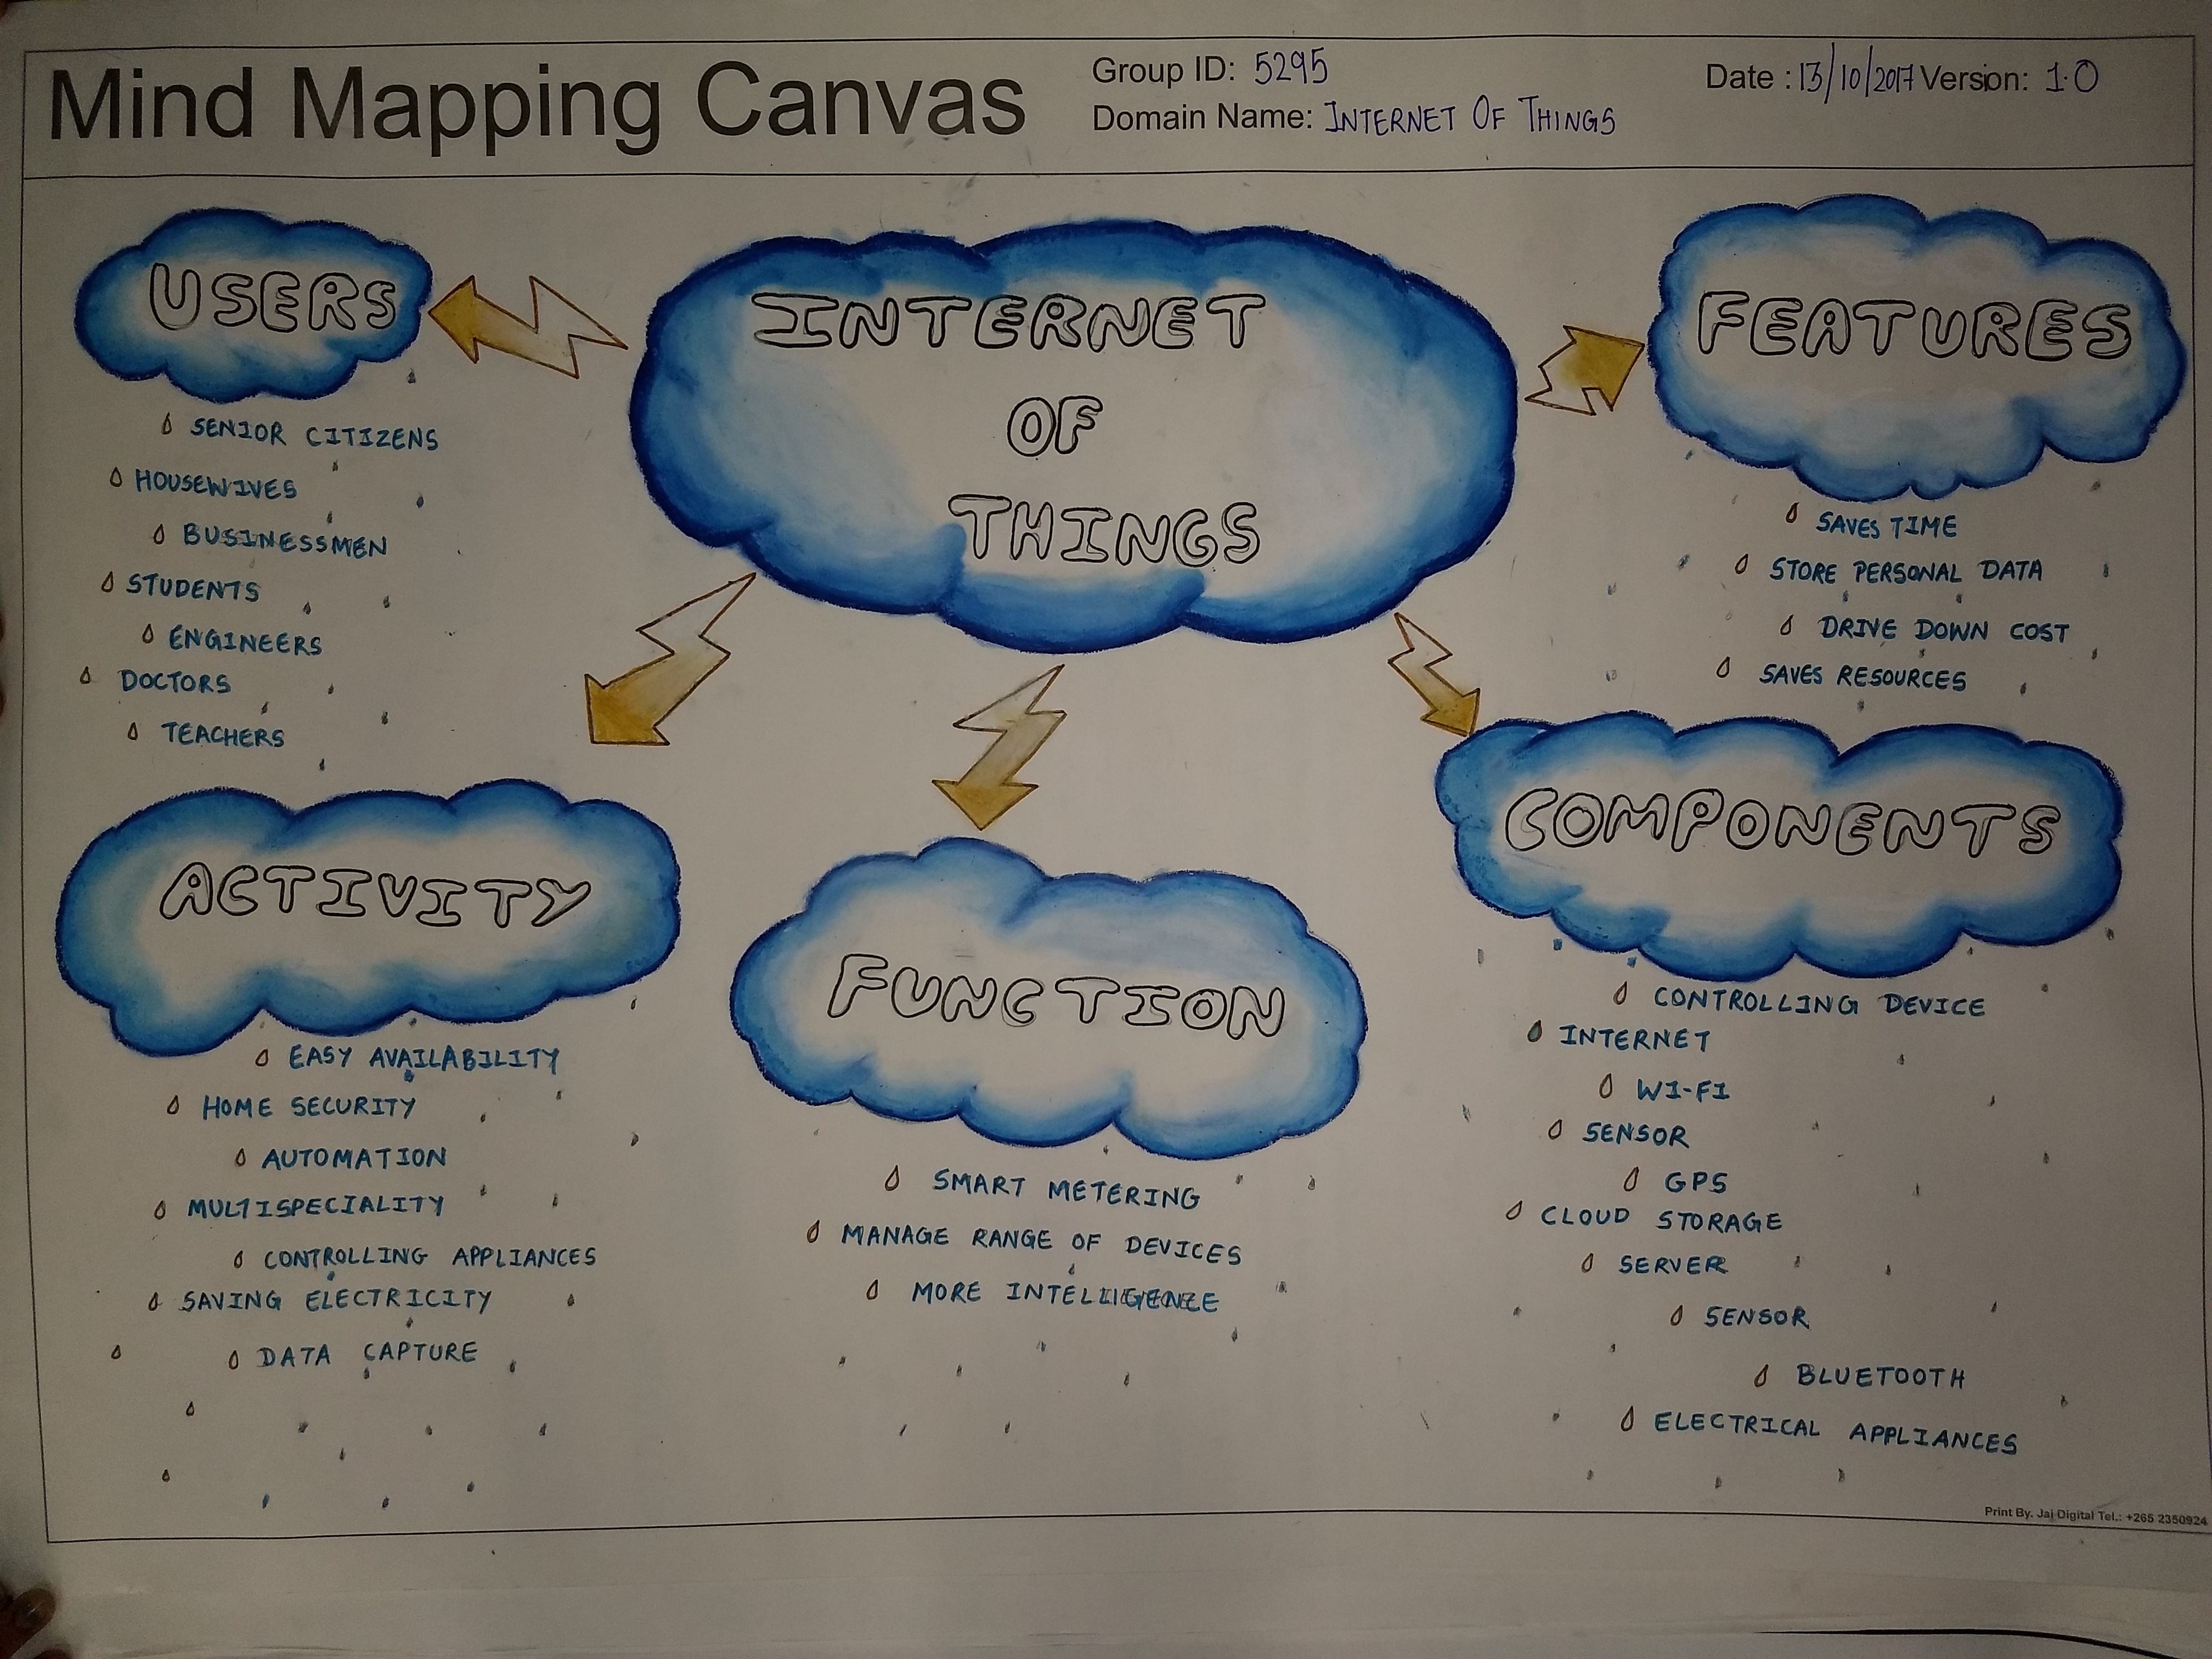 Mind Mapping Canvas
Group ID: 5295
Domain Name: INTERNET OF THINGS
Date : 13/10/2017 Version: 1.0
USERS
SENIOR CITIZENS
HOUSEWIVES
BUSINESSMEN
STUDENTS
ENGINEERS
DOCTORS
TEACHERS
INTERNET
OF
THINGS
FEATURES
SAVES TIME
STORE PERSONAL DATA
DRIVE DOWN COST
SAVES RESOURCES
ACTIVITY
EASY AVAILABILITY
HOME SECURITY
AUTOMATION
MULTISPECIALITY
CONTROLLING APPLIANCES
SAVING ELECTRICITY
DATA CAPTURE
FUNCTION
SMART METERING
MANAGE RANGE OF DEVICES
MORE INTELLIGENCE
COMPONENTS
CONTROLLING DEVICE
INTERNET
WI-FI
SENSOR
GPS
CLOUD STORAGE
SERVER
SENSOR
BLUETOOTH
ELECTRICAL APPLIANCES
Print By. Jaj Digital Tel.: +265 2350924